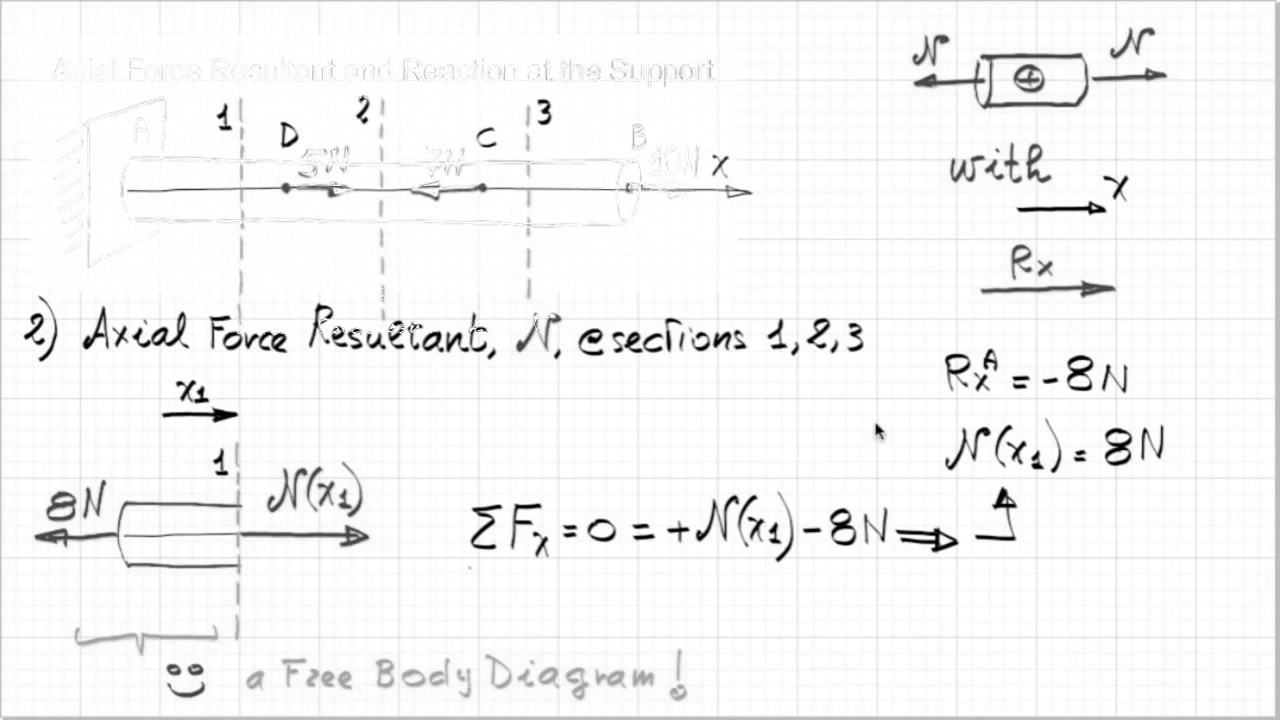 Axial Force Resultant and Reaction at the Support
N N
1 2 3
A D C B
5N 7N 10N x
with
x
Rx
2) Axial Force Resultant, N, @sections 1,2,3
x1
Rx^A = -8N
N(x1) = 8N
1
8N N(x1)
ΣFx = 0 = +N(x1) - 8N ⇒
a Free Body Diagram!